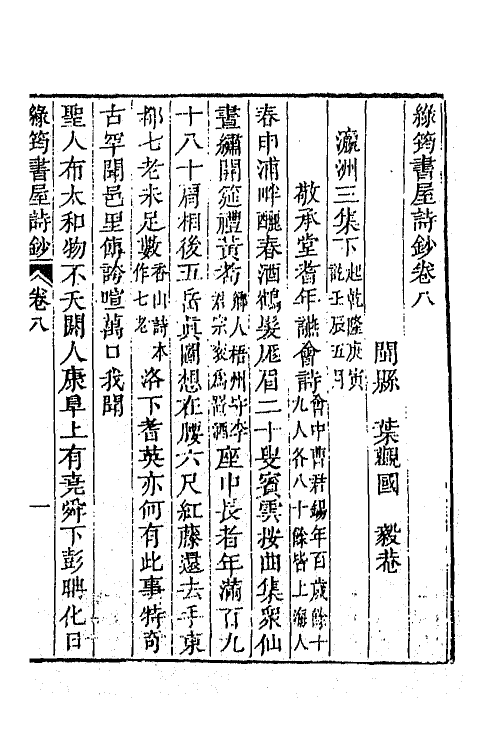 綠筠書屋詩鈔卷八
閩縣　葉觀國　毅菴
瀛洲三集下起乾隆庚寅訖壬辰五月
敬承堂耆年讌會詩會中曹君錫年百歲餘十九人各八十餘皆上海人
春申浦畔釃春酒鶴髮厖眉二十叟賓雲按曲集眾仙
晝繡開筵禮黃耇鄉人梧州守李君宗袁為置酒座中長者年滿百九
十八十肩相後五岳眞圖想在腰六尺紅藤還去手東
都七老未足數香山詩本作七老洛下耆英亦何有此事特奇
古罕聞邑里傳誇喧萬口我聞
聖人布太和物不夭閼人康阜上有堯舜下彭聃化日
綠筠書屋詩鈔　卷八　一